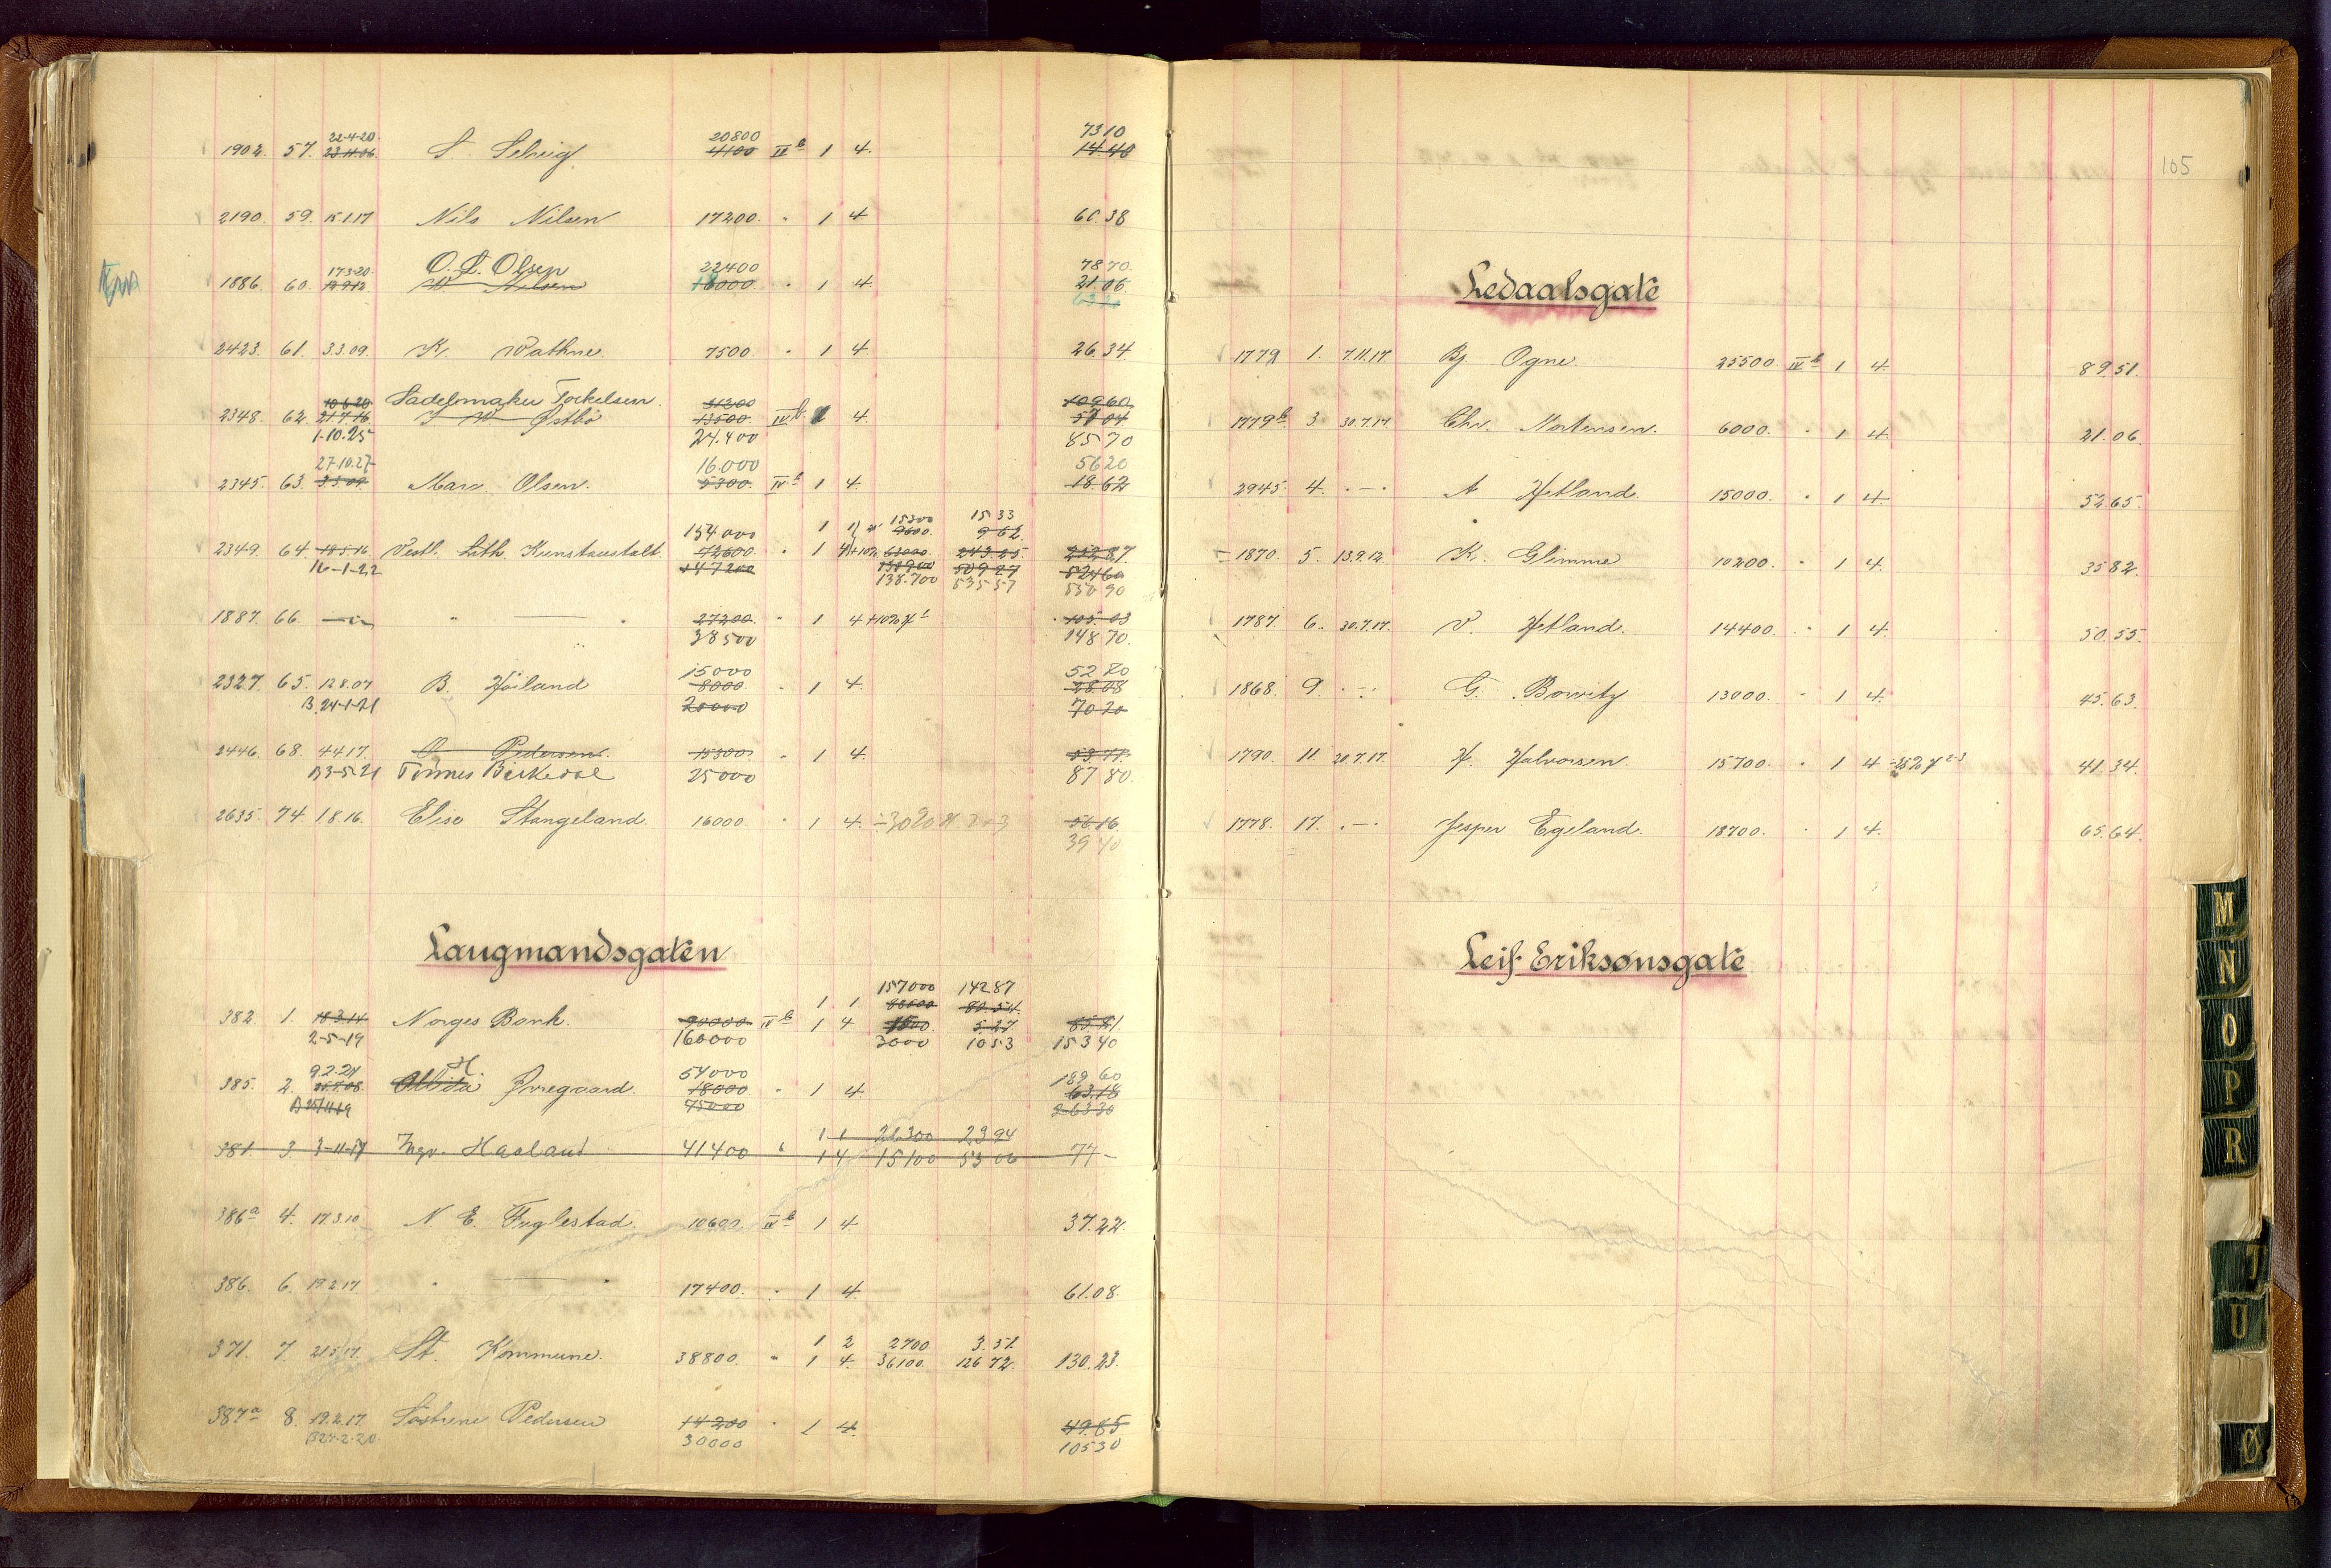 22-4-20 20800 7310
1902. 57. 23.11.06 S. Selvig 4100 IV b 1 4. 14.40
2190. 59. 15.1.17 Nils Nilsen 17200. " 1 4 60.38
17.3.20 O. L. Olsen 22400 78 70.
1886. 60. 13.9.12 Nilsen 18000. " 1 4. 21.06
2423. 61. 3.3.09. K. Vathne. 7500. " 1 4. 26.34
10.6.20 Sadelmaker Torkelsen. 31200 109.60
2348. 62. 21.7.16 Østbö 13500. IV b 1 4. 57.04
1-10.25 24.400 85 70
27.10.27 16.000 56 20
2345. 63. 3.3.09 Marc. Olsen. 5300. IV b 1 4. 18.62
154000 1 15300 15 33
9600. 9 62.
2349. 64. 18.5.16. Vestl. Lith. Kunstanstalt. 72600. " 1 4 +10% 63000. 243.25
16-1-22 147200 509 27 524 60
138.700 535 57 550 90
1887. 66. " — " 27200. " 1 4 +10% 105.03
38500 148 70.
15000 52 70
2327. 65. 12.8.07 B. Höiland 8000. " 1 4. 28.08
B. 24-1-21 20000 70 20
2446. 68. 4.4.17. O. Pedersen. 15300. " 1 4. 53.71
B 3-5-21 Tönnes Birkedal 25000 87 80.
2635. 74. 1.8.16. Elise Stangeland. 16000. " 1 4. -30% 56.16.
39 40
Laugmandsgaten
157000 142 87
1 1 88500 80.54
382. 1. 18.3.14 Norges Bank. 90000 IV b 1 4 1500 5.27 85.81
2-5-19 160000 3000 10 53 153 40
9.2.21 H 54000 189 60
385. 2. Alvida Ovregaard. 18000 " 1 4. 63.18
75000 263 30
1 1 26300 23 94
381. 3. 3-11-17 Ingv. Hasland 41400 " 1 4 15100 53 06 77 -
386a 4. 17.3.10 N. E. Fuglestad. 10600. IV b 1 4. 37.22.
386. 6. 19.2.17 " — " 17400. " 1 4. 61.08.
1 2 2700. 3.51
371. 7. 21.5.17. St. Kommune. 38800. " 1 4. 36100. 126 72. 130.23.
387a 8. 19.2.17. Söstrene Pedersen 14200 " 1 4. 49.85
B 24-2-20. 30000 105 30
105
Ledaalsgate
1779 1. 7.11.17 Bj. Ogne. 25500. IV b 1 4. 89.51.
1779b. 3 30.7.17 Chr. Mortensen. 6000. " 1 4. 21.06.
2945. 4. " — " A. Hetland. 15000. " 1 4. 52.65.
1870. 5. 13.9.12 K. Glimme 10200. " 1 4. 35.82.
1787. 6. 30.7.17. V. Hetland. 14400. " 1 4. 50.55.
1868. 9. " — " G. Bowitz 13000. " 1 4. 45.63.
1790. 11. 20.7.17. H. Halvorsen. 15700. " 1 4 -25% 41.34.
1778. 17. " — " Jesper Egeland. 18700. " 1 4. 65.64.
Leif Eriksønsgate
M
N
O
P
R
U
Ø